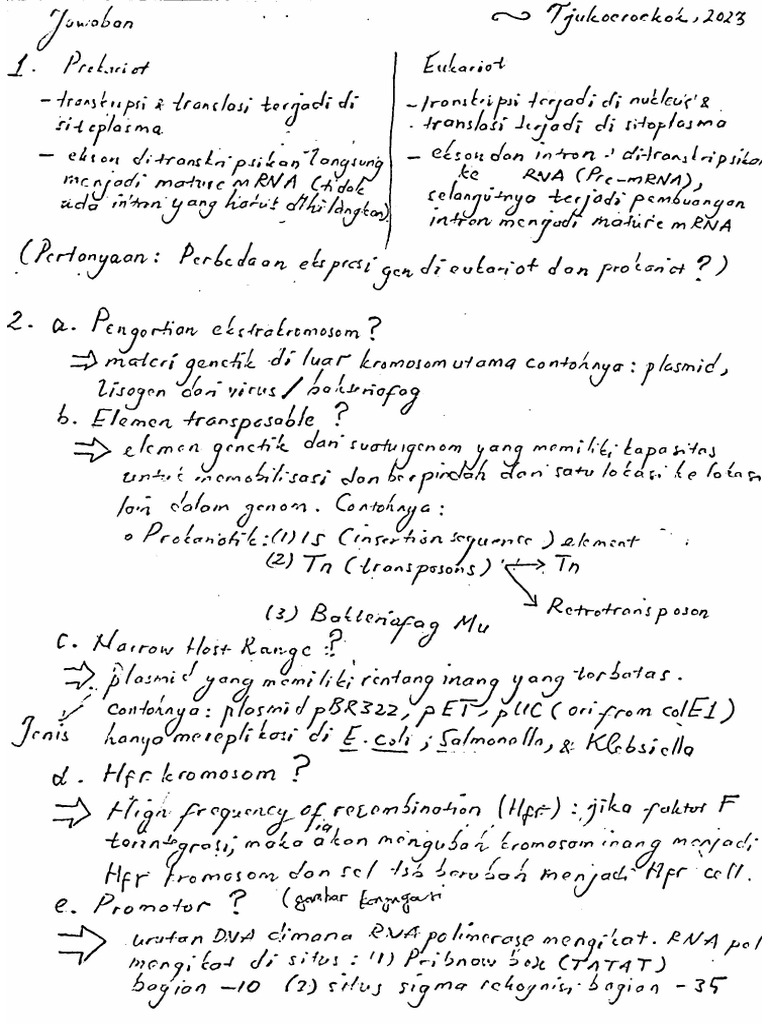 Jawaban
~ Tjukocrockok, 2023
1. Prokariot
- transkripsi & translasi terjadi di
sitoplasma
- ekson ditranskripsikan langsung
menjadi mature mRNA (tidak
ada intron yang harus dihilangkan)
Eukariot
- transkripsi terjadi di nukleus &
translasi terjadi di sitoplasma
- ekson dan intron ditranskripsikan
ke RNA (Pre-mRNA),
selanjutnya terjadi pembuangan
intron menjadi mature mRNA
(Pertanyaan: Perbedaan ekspresi gen di eukariot dan prokariot ?)
2. a. Pengertian ekstrakromosom ?
⇒ materi genetik di luar kromosom utama contohnya: plasmid,
lisogen dari virus / bakteriofag
b. Elemen transposable ?
⇒ elemen genetik dari suatu genom yang memiliki kapasitas
untuk memobilisasi dan berpindah dari satu lokasi ke lokasi
lain dalam genom. Contohnya:
o Prokariotik: (1) IS (insertion sequence) element
(2) Tn (transposons) → Tn
→ Retrotransposon
(3) Bakteriofag Mu
c. Narrow Host Range ?
⇒ plasmid yang memiliki rentang inang yang terbatas.
contohnya: plasmid pBR322, pET, pUC (ori from colE1)
Jenis hanya mereplikasi di E. coli ; Salmonella, & Klebsiella
d. Hfr kromosom ?
⇒ High frequency of recombination (Hfr) : jika faktor F
terintegrasi, maka ia akan mengubah kromosom inang menjadi
Hfr kromosom dan sel tsb berubah menjadi Hfr cell.
(gambar konjugasi
e. Promotor ?
⇒ urutan DNA dimana RNA polimerase mengikat. RNA pol
mengikat di situs : (1) Pribnow box (TATAT)
bagian -10 (2) situs sigma rekognisi bagian -35